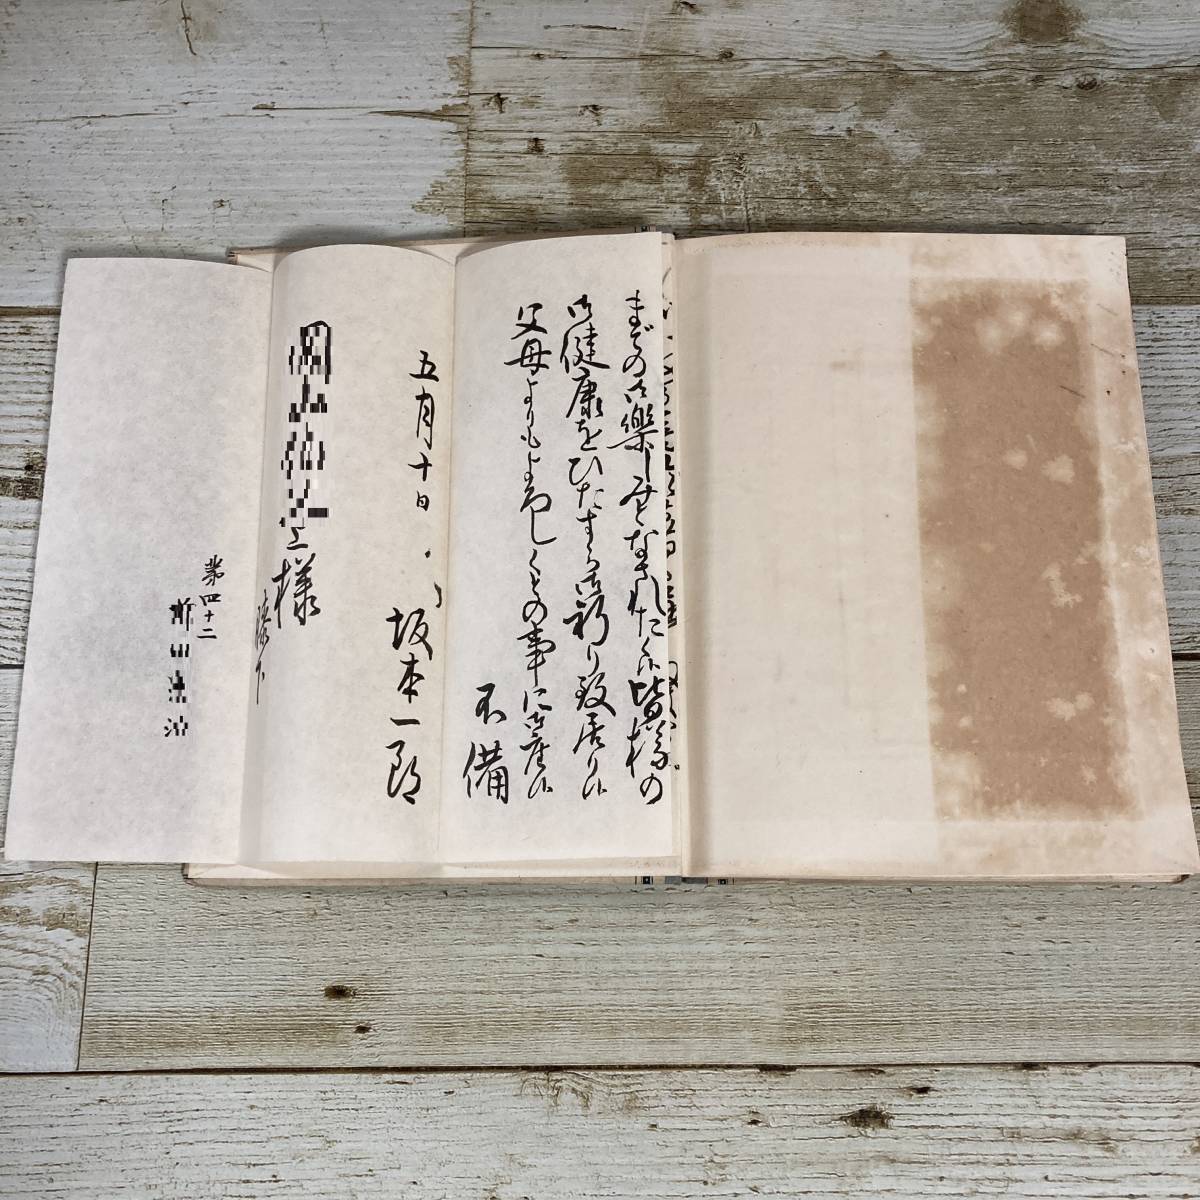 までの御樂しみとなされたく候皆様の
御健康をひたすら御祈り致居り候
父母よりもよろしくとの事に御座候
不備
五月十日
坂本一郎
様
膝下
第四十二